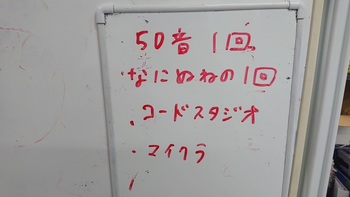 50音 1回
・なにぬねの1回
・コードスタジオ
・マイクラ